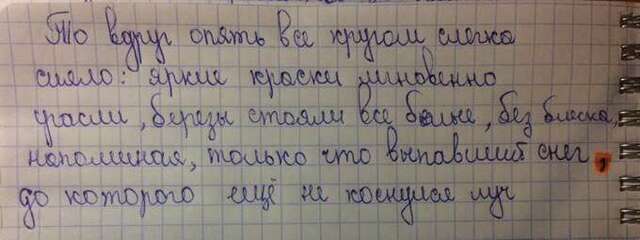 То вдруг опять все кругом слегка
сияло: яркие краски мгновенно
угасли, березы стояли все белые, без блеска,
напоминая, только что выпавший снег,
до которого ещё не коснулся луч